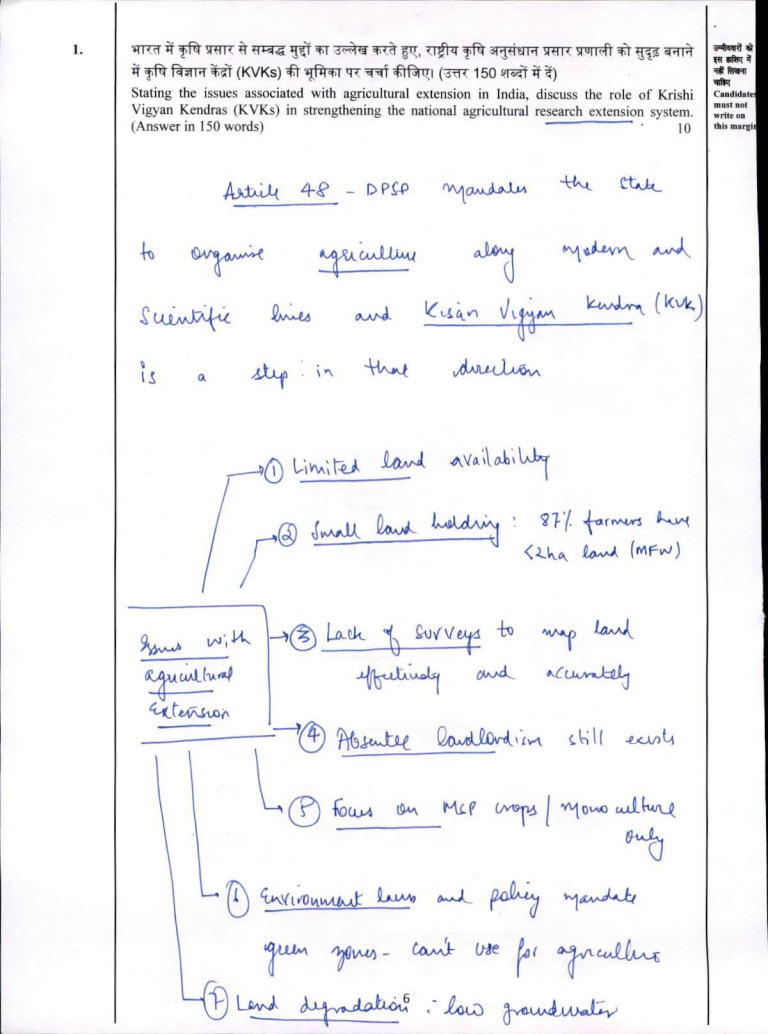 1.
भारत में कृषि प्रसार से सम्बद्ध मुद्दों का उल्लेख करते हुए, राष्ट्रीय कृषि अनुसंधान प्रसार प्रणाली को सुदृढ़ बनाने
में कृषि विज्ञान केंद्रों (KVKs) की भूमिका पर चर्चा कीजिए। (उत्तर 150 शब्दों में दें)
Stating the issues associated with agricultural extension in India, discuss the role of Krishi
Vigyan Kendras (KVKs) in strengthening the national agricultural research extension system.
(Answer in 150 words) 10
उम्मीदवारों को
इस हाशिए में
नहीं लिखना
चाहिए
Candidates
must not
write on
this margin
Article 48 - DPSP mandates the state
to organise agriculture along modern and
Scientific lines and Kisan Vigyan Kendra (KVK)
is a step in that direction
Issues with
agricultural
Extension
① Limited land availability
② Small land holding : 87% farmers have
<2ha land (MFW)
③ Lack of surveys to map land
effectively and accurately
④ Absentee landlordism still exists
⑤ Focus on MSP crops / Monoculture
only
⑥ Environment laws and policy mandate
green zones - can't use for agriculture
⑦ Land degradation : low groundwater
6